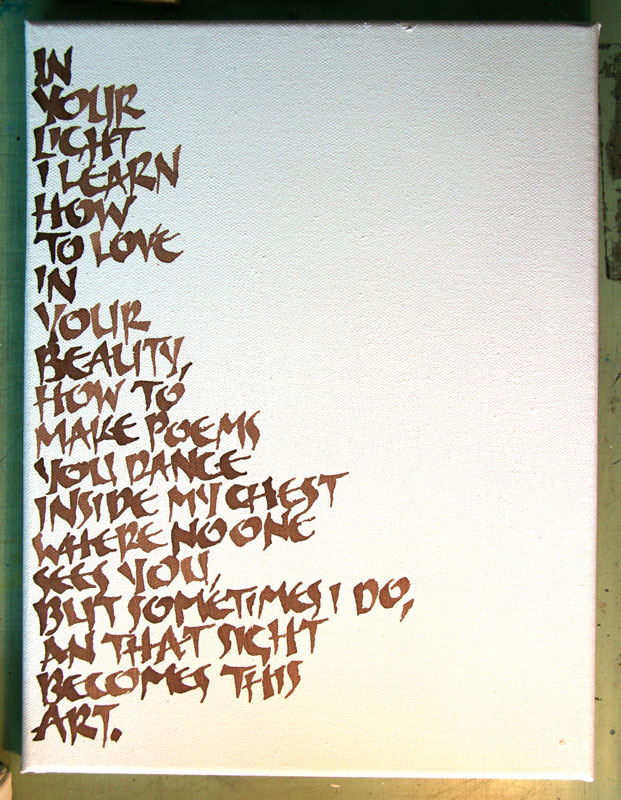 IN
YOUR
LIGHT
I LEARN
HOW
TO LOVE
IN
YOUR
BEAUTY,
HOW TO
MAKE POEMS
YOU DANCE
INSIDE MY CHEST
WHERE NO ONE
SEES YOU,
BUT SOMETIMES I DO,
AN THAT SIGHT
BECOMES THIS
ART.